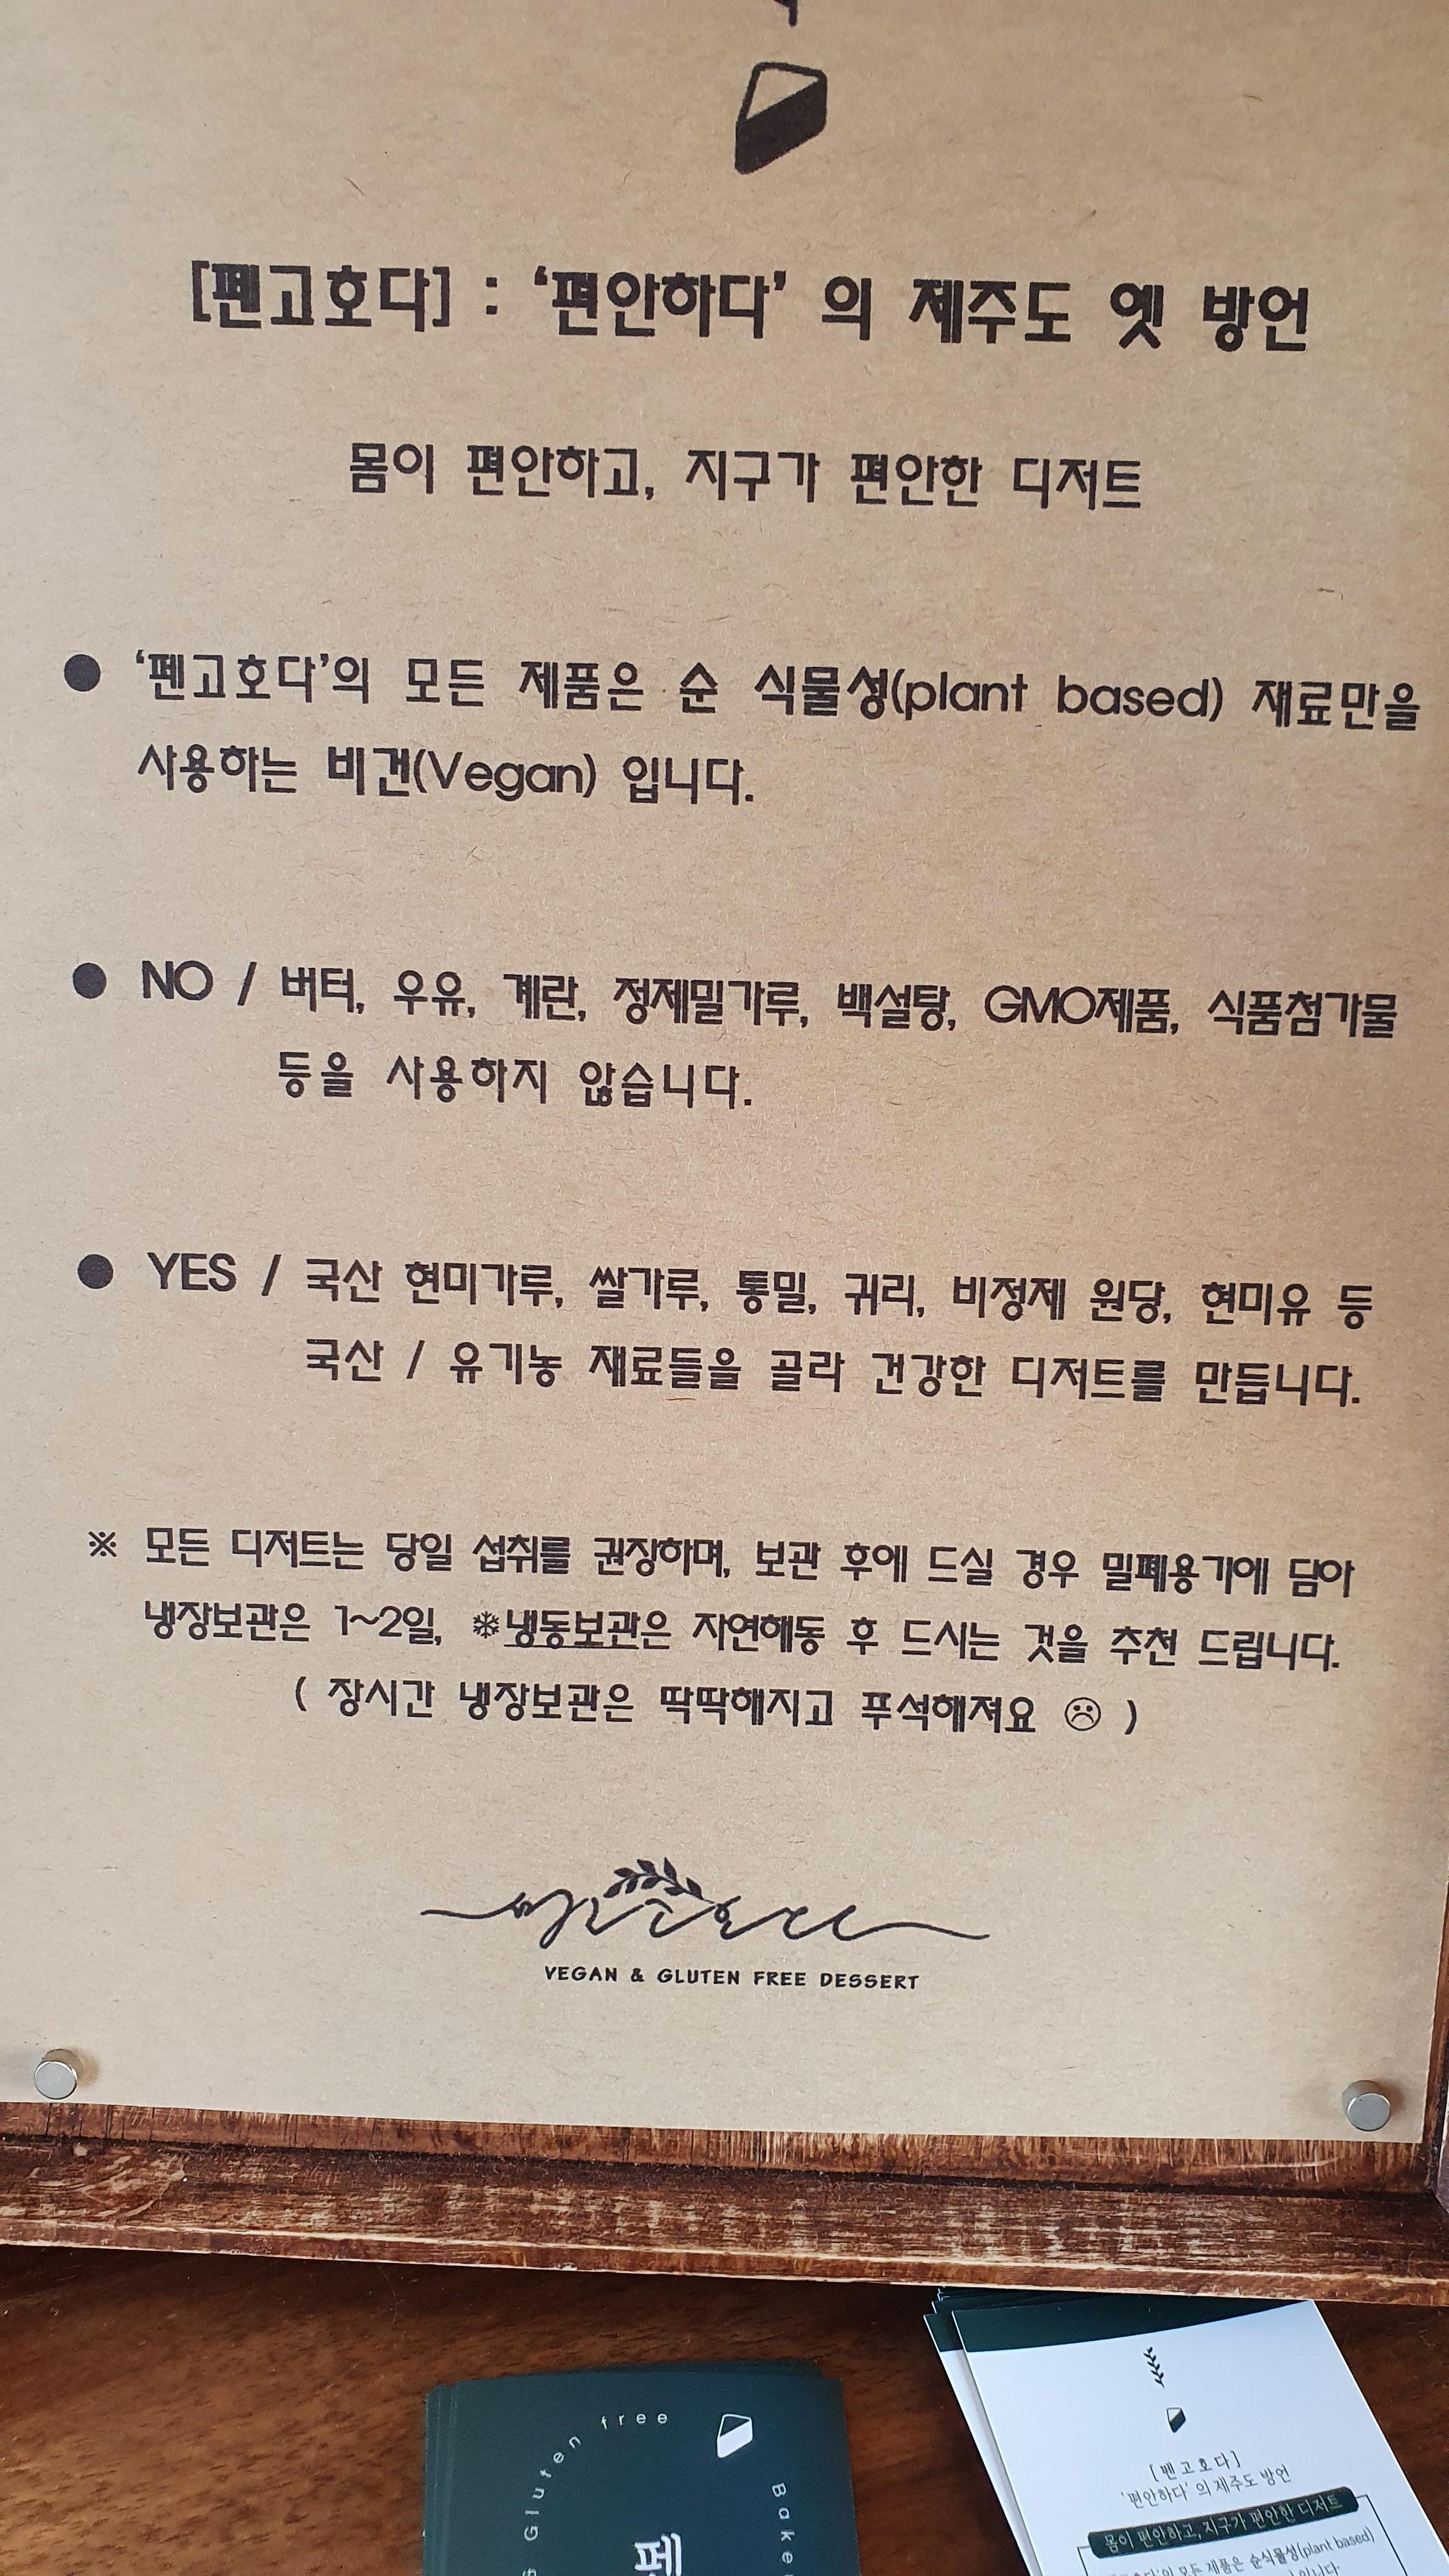 [펜고호다] : ‘편안하다’ 의 제주도 옛 방언
몸이 편안하고, 지구가 편안한 디저트
● ‘펜고호다’의 모든 제품은 순 식물성(plant based) 재료만을
사용하는 비건(Vegan) 입니다.
● NO / 버터, 우유, 계란, 정제밀가루, 백설탕, GMO제품, 식품첨가물
등을 사용하지 않습니다.
● YES / 국산 현미가루, 쌀가루, 통밀, 귀리, 비정제 원당, 현미유 등
국산 / 유기농 재료들을 골라 건강한 디저트를 만듭니다.
※ 모든 디저트는 당일 섭취를 권장하며, 보관 후에 드실 경우 밀폐용기에 담아
냉장보관은 1~2일, ❄냉동보관은 자연해동 후 드시는 것을 추천 드립니다.
( 장시간 냉장보관은 딱딱해지고 푸석해져요 ☹ )
펜고호다
VEGAN & GLUTEN FREE DESSERT
Gluten free
펜
[펜고호다]
‘편안하다’의 제주도 방언
몸이 편안하고, 지구가 편안한 디저트
모든 제품은 순식물성(plant based)